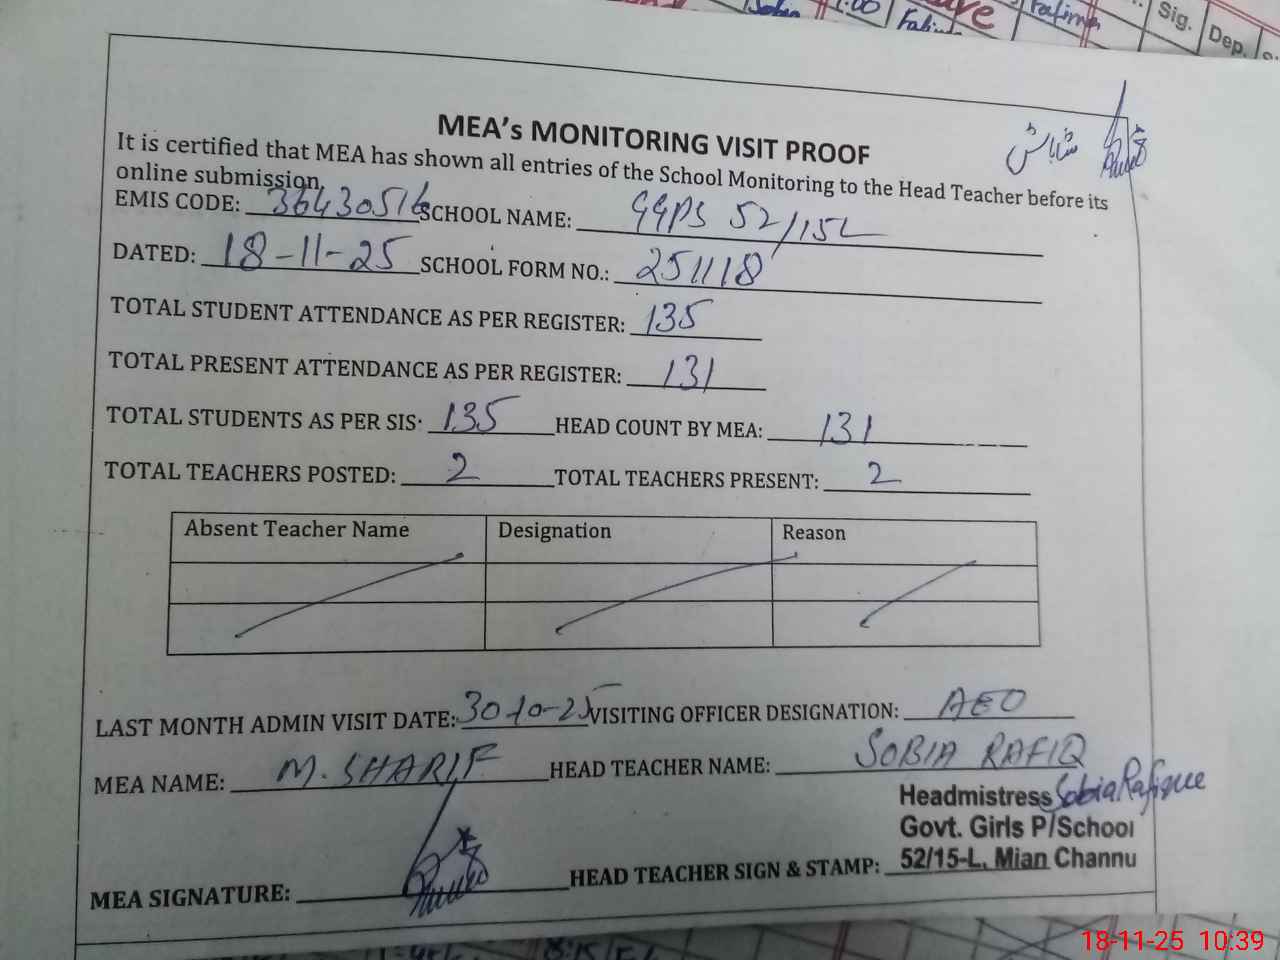 Sobia 1:00 Fatima Fatima Sig. Dep.
MEA's MONITORING VISIT PROOF
شاباش
It is certified that MEA has shown all entries of the School Monitoring to the Head Teacher before its
online submission
EMIS CODE: 36430516 SCHOOL NAME: GGPS 52/15L
DATED: 18-11-25 SCHOOL FORM NO.: 251118
TOTAL STUDENT ATTENDANCE AS PER REGISTER: 135
TOTAL PRESENT ATTENDANCE AS PER REGISTER: 131
TOTAL STUDENTS AS PER SIS: 135 HEAD COUNT BY MEA: 131
TOTAL TEACHERS POSTED: 2 TOTAL TEACHERS PRESENT: 2
Absent Teacher Name Designation Reason
LAST MONTH ADMIN VISIT DATE: 30-10-25 VISITING OFFICER DESIGNATION: AEO
MEA NAME: M. SHARIF HEAD TEACHER NAME: SOBIA RAFIQ
Headmistress Sobia Rafique
Govt. Girls P/School
MEA SIGNATURE: HEAD TEACHER SIGN & STAMP: 52/15-L, Mian Channu
18-11-25 10:39